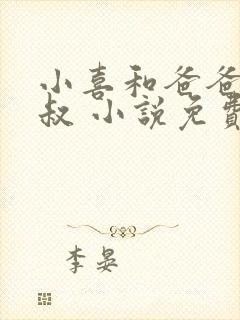 小喜和爸爸
叔 小說免費
李晏